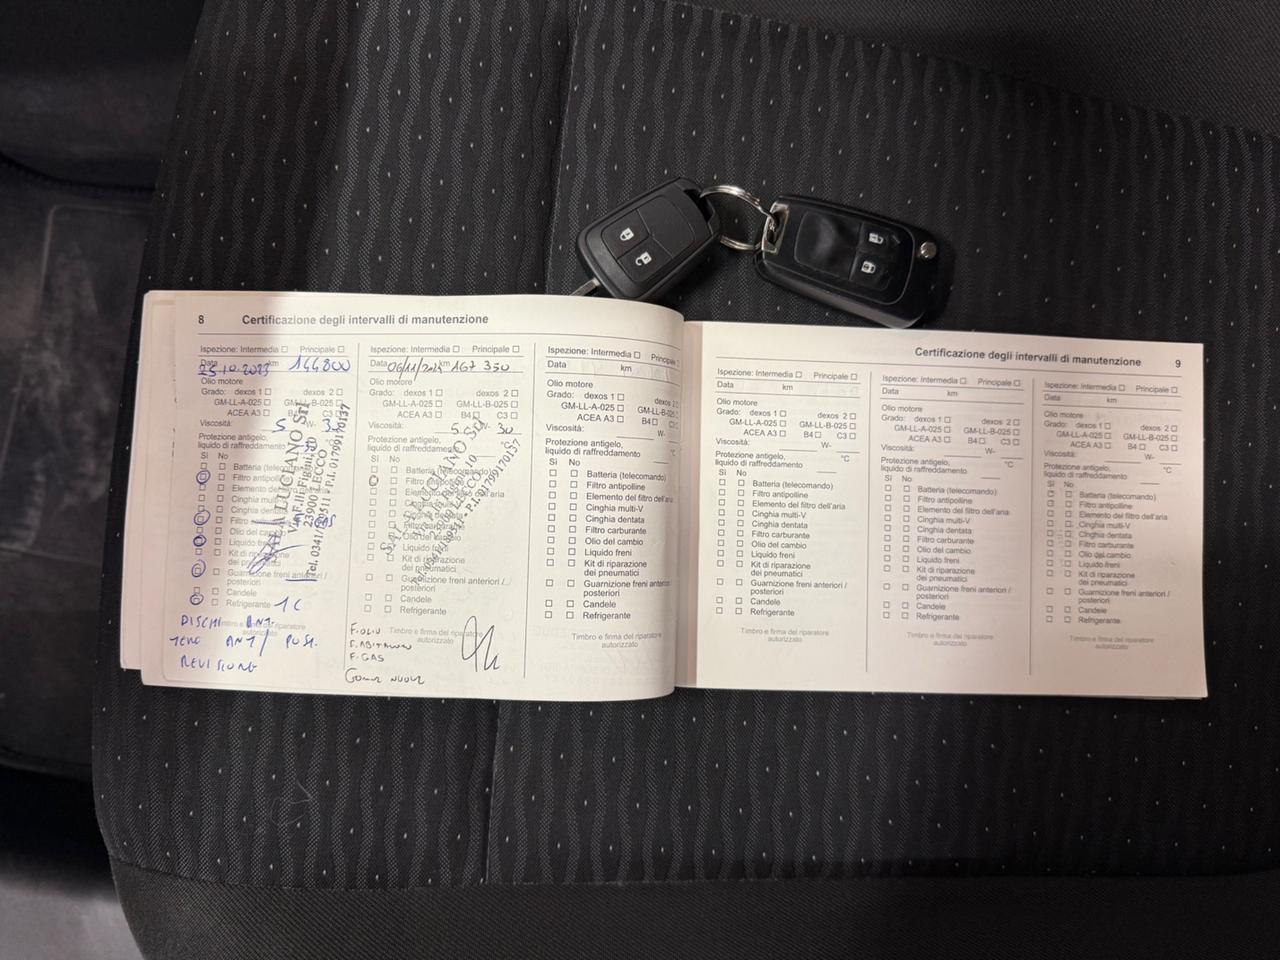 8 Certificazione degli intervalli di manutenzione
Ispezione: Intermedia Principale
Data 25.10.2023 km 144800
Olio motore
Grado: dexos 1 dexos 2
GM-LL-A-025 GM-LL-B-025
ACEA A3 B4
Viscosità: 5 W- 30
Protezione antigelo,
liquido di raffreddamento
Sì No
Batteria
Filtro antipolline
Elemento del
Cinghia multi-V
Cinghia dentata
Filtro
Olio del cambio
Liquido freni
Kit di riparazione
dei pneumatici
Guarnizione freni anteriori /
posteriori
Candele
Refrigerante
DISCHI ANT.
ANT/ POST.
REVISIONE
LUCIANO Srl
23900 LECCO
P.I. 01799170137
Ispezione: Intermedia Principale
Data 06/11/ km 167 350
Olio motore
Grado: dexos 1 dexos 2
GM-LL-A-025 GM-LL-B-025
ACEA A3 B4 C3
Viscosità: 5 W- 30
Protezione antigelo,
liquido di raffreddamento
Sì No
Batteria (telecomando)
Filtro antipolline
Elemento del filtro dell'aria
Cinghia multi-V
Cinghia dentata
Filtro carburante
Olio del cambio
Liquido freni
Kit di riparazione
dei pneumatici
Guarnizione freni anteriori /
posteriori
Candele
Refrigerante
Timbro e firma del riparatore
autorizzato
F. OLIO
F. ABITACOLO
F. GAS
GOMME NUOVE
Ispezione: Intermedia Principale
Data km
Olio motore
Grado: dexos 1 dexos 2
GM-LL-A-025 GM-LL-B-025
ACEA A3 B4 C3
Viscosità: W-
Protezione antigelo,
liquido di raffreddamento °C
Sì No
Batteria (telecomando)
Filtro antipolline
Elemento del filtro dell'aria
Cinghia multi-V
Cinghia dentata
Filtro carburante
Olio del cambio
Liquido freni
Kit di riparazione
dei pneumatici
Guarnizione freni anteriori /
posteriori
Candele
Refrigerante
Timbro e firma del riparatore
autorizzato
Certificazione degli intervalli di manutenzione 9
Ispezione: Intermedia Principale
Data km
Olio motore
Grado: dexos 1 dexos 2
GM-LL-A-025 GM-LL-B-025
ACEA A3 B4 C3
Viscosità: W-
Protezione antigelo,
liquido di raffreddamento °C
Sì No
Batteria (telecomando)
Filtro antipolline
Elemento del filtro dell'aria
Cinghia multi-V
Cinghia dentata
Filtro carburante
Olio del cambio
Liquido freni
Kit di riparazione
dei pneumatici
Guarnizione freni anteriori /
posteriori
Candele
Refrigerante
Timbro e firma del riparatore
autorizzato
Ispezione: Intermedia Principale
Data km
Olio motore
Grado: dexos 1 dexos 2
GM-LL-A-025 GM-LL-B-025
ACEA A3 B4 C3
Viscosità: W-
Protezione antigelo,
liquido di raffreddamento °C
Sì No
Batteria (telecomando)
Filtro antipolline
Elemento del filtro dell'aria
Cinghia multi-V
Cinghia dentata
Filtro carburante
Olio del cambio
Liquido freni
Kit di riparazione
dei pneumatici
Guarnizione freni anteriori /
posteriori
Candele
Refrigerante
Timbro e firma del riparatore
autorizzato
Ispezione: Intermedia Principale
Data km
Olio motore
Grado: dexos 1 dexos 2
GM-LL-A-025 GM-LL-B-025
ACEA A3 B4 C3
Viscosità: W-
Protezione antigelo,
liquido di raffreddamento °C
Sì No
Batteria (telecomando)
Filtro antipolline
Elemento del filtro dell'aria
Cinghia multi-V
Cinghia dentata
Filtro carburante
Olio del cambio
Liquido freni
Kit di riparazione
dei pneumatici
Guarnizione freni anteriori /
posteriori
Candele
Refrigerante
Timbro e firma del riparatore
autorizzato